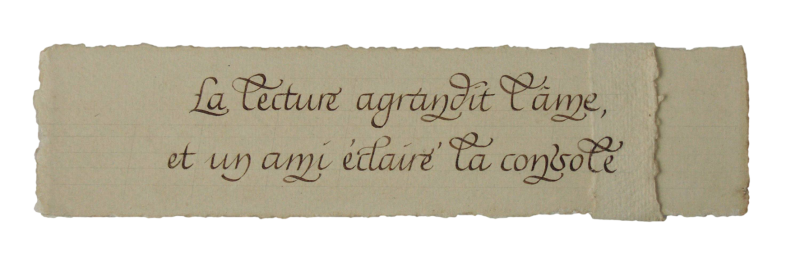 La lecture agrandit l'âme,
et un ami éclairé la console